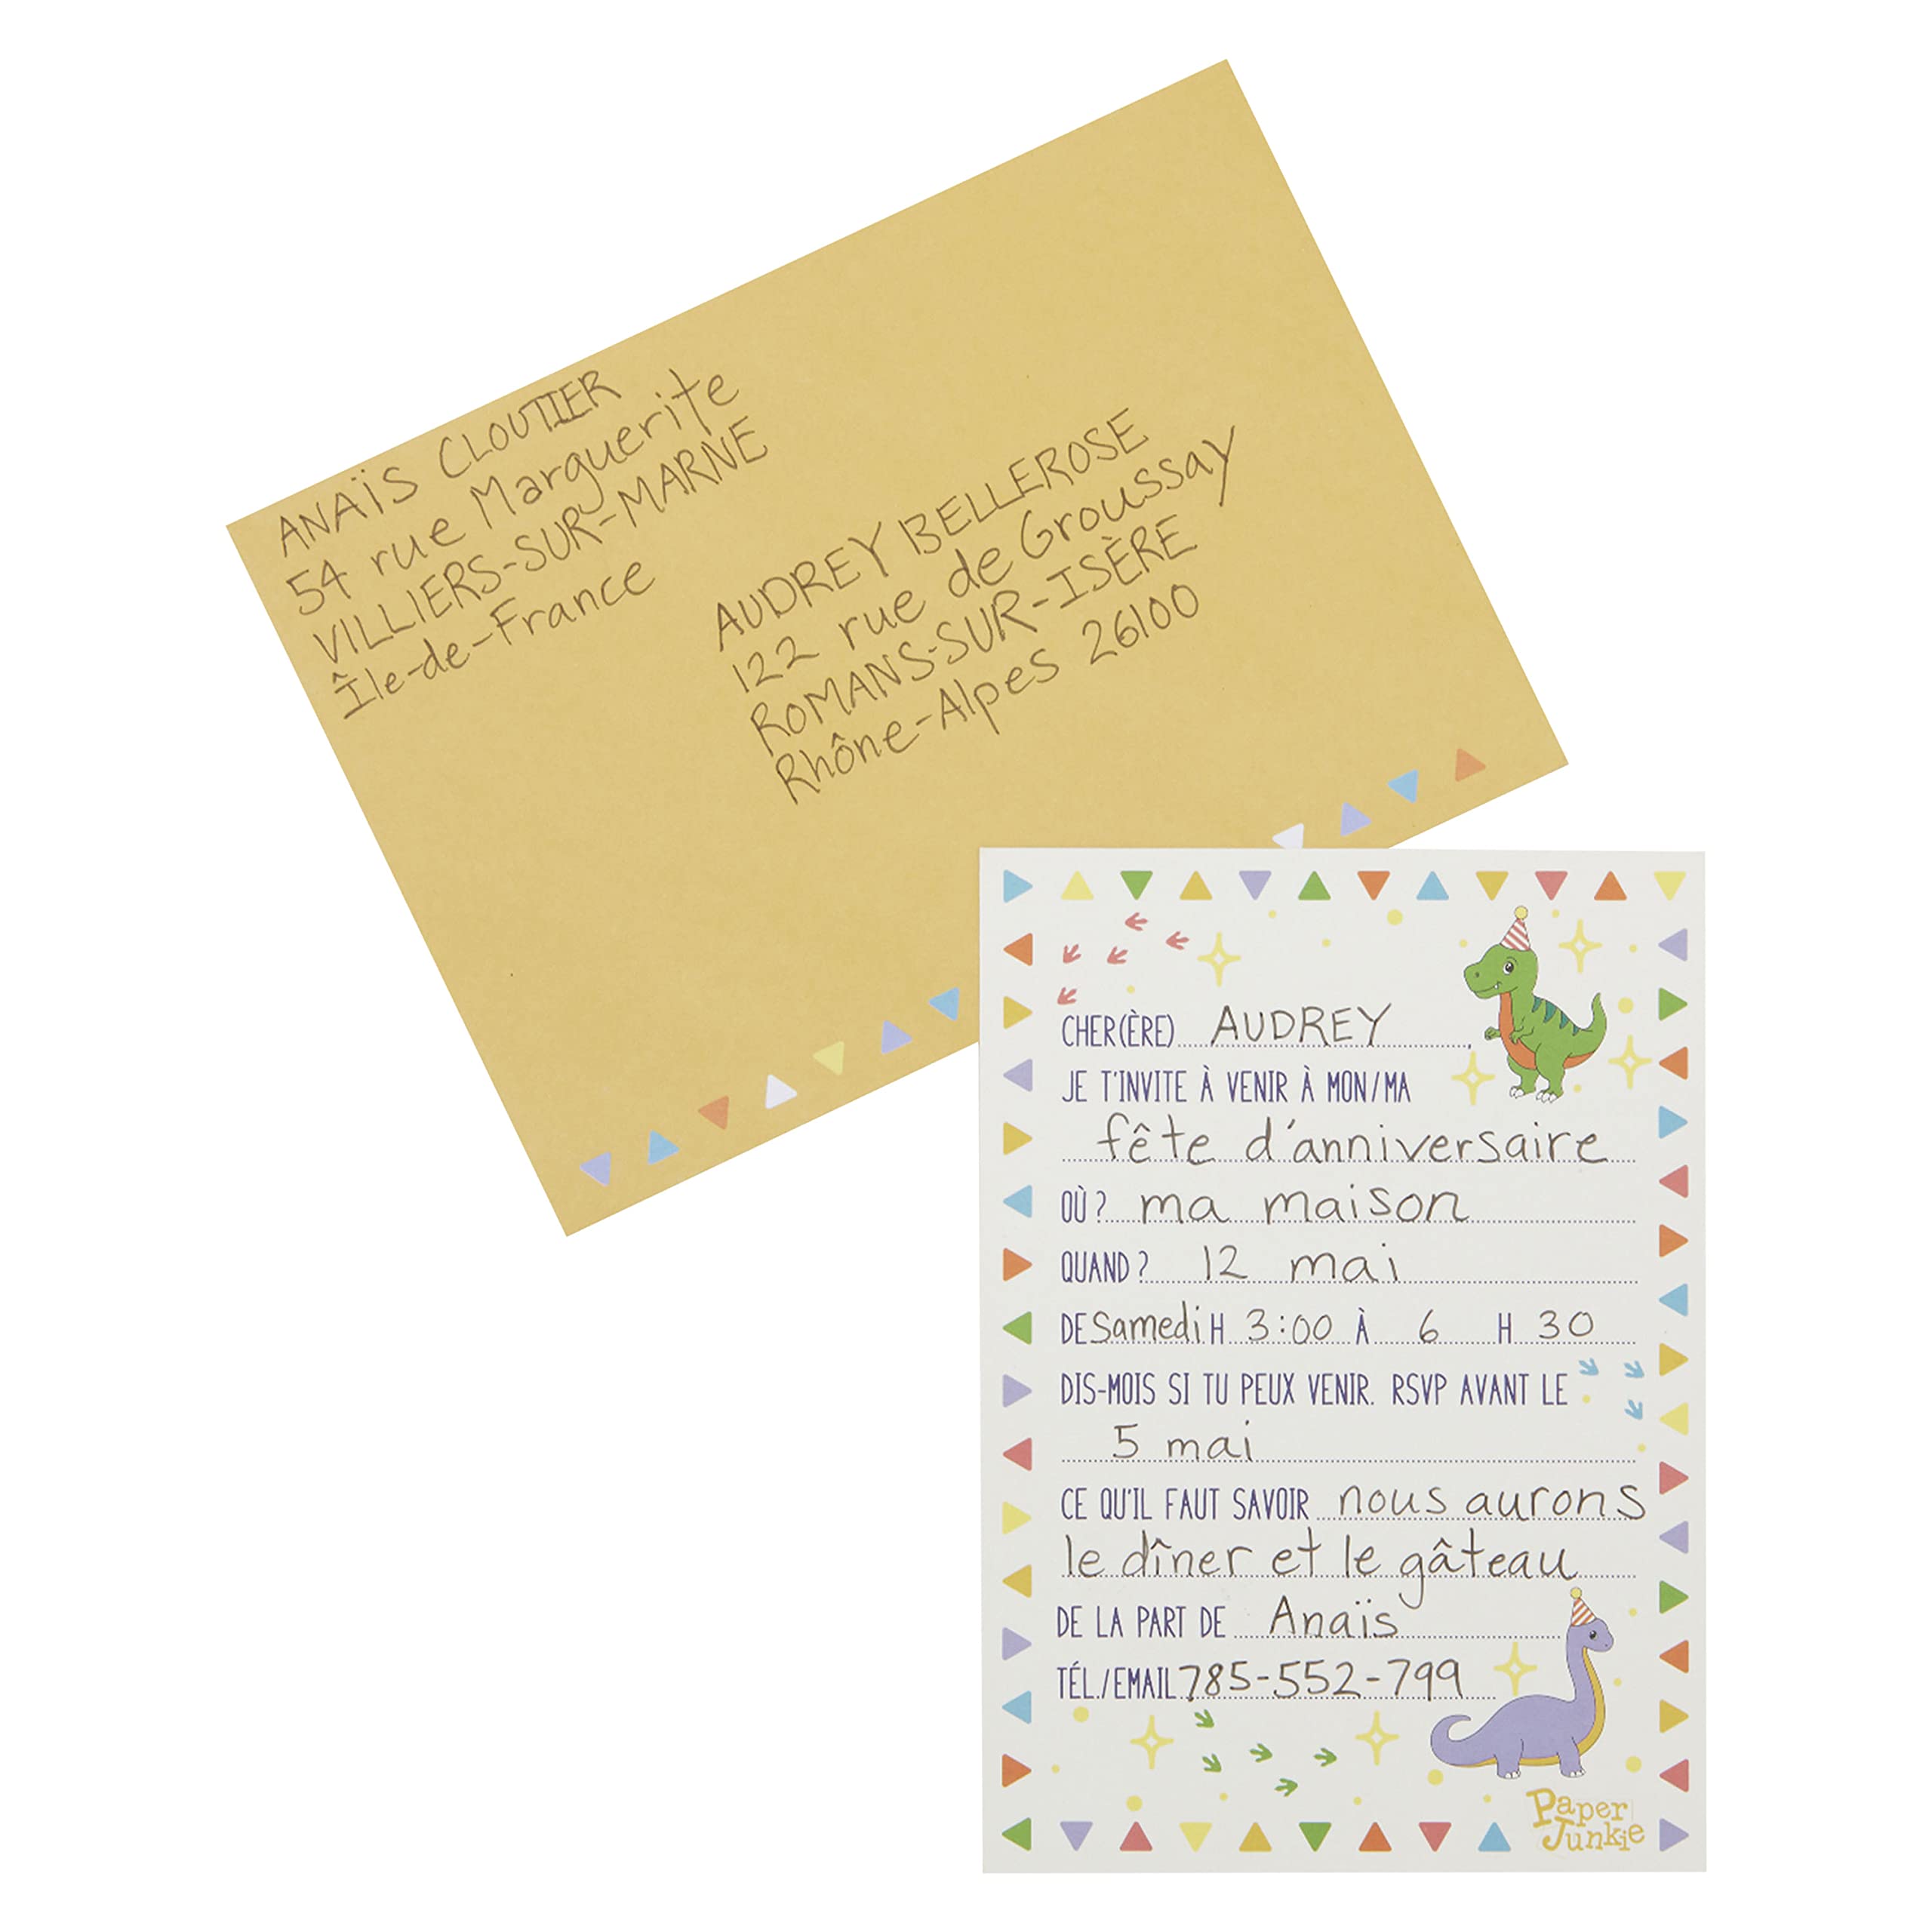 ANAÏS CLOUTIER
54 rue Marguerite
VILLIERS-SUR-MARNE
Île-de-France
AUDREY BELLEROSE
122 rue de Groussay
ROMANS-SUR-ISÈRE
Rhône-Alpes 26100
CHER(ÈRE) AUDREY,
JE T'INVITE À VENIR À MON/MA
fête d'anniversaire
OÙ? ma maison
QUAND? 12 mai
DE Samedi H 3:00 À 6 H 30
DIS-MOIS SI TU PEUX VENIR. RSVP AVANT LE
5 mai
CE QU'IL FAUT SAVOIR nous aurons
le dîner et le gâteau
DE LA PART DE Anaïs
TÉL./EMAIL 785-552-799
Paper
Junkie